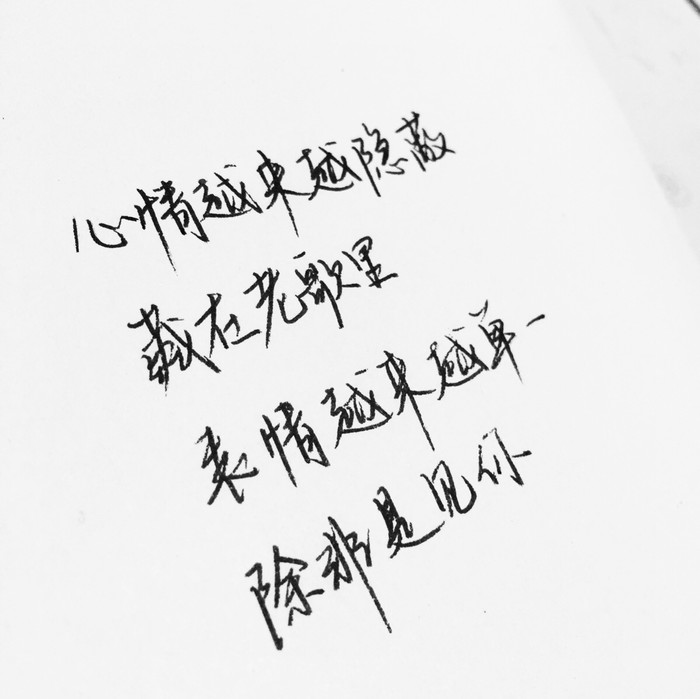 心情越来越隐蔽
藏在老歌里
表情越来越单一
除非是见你